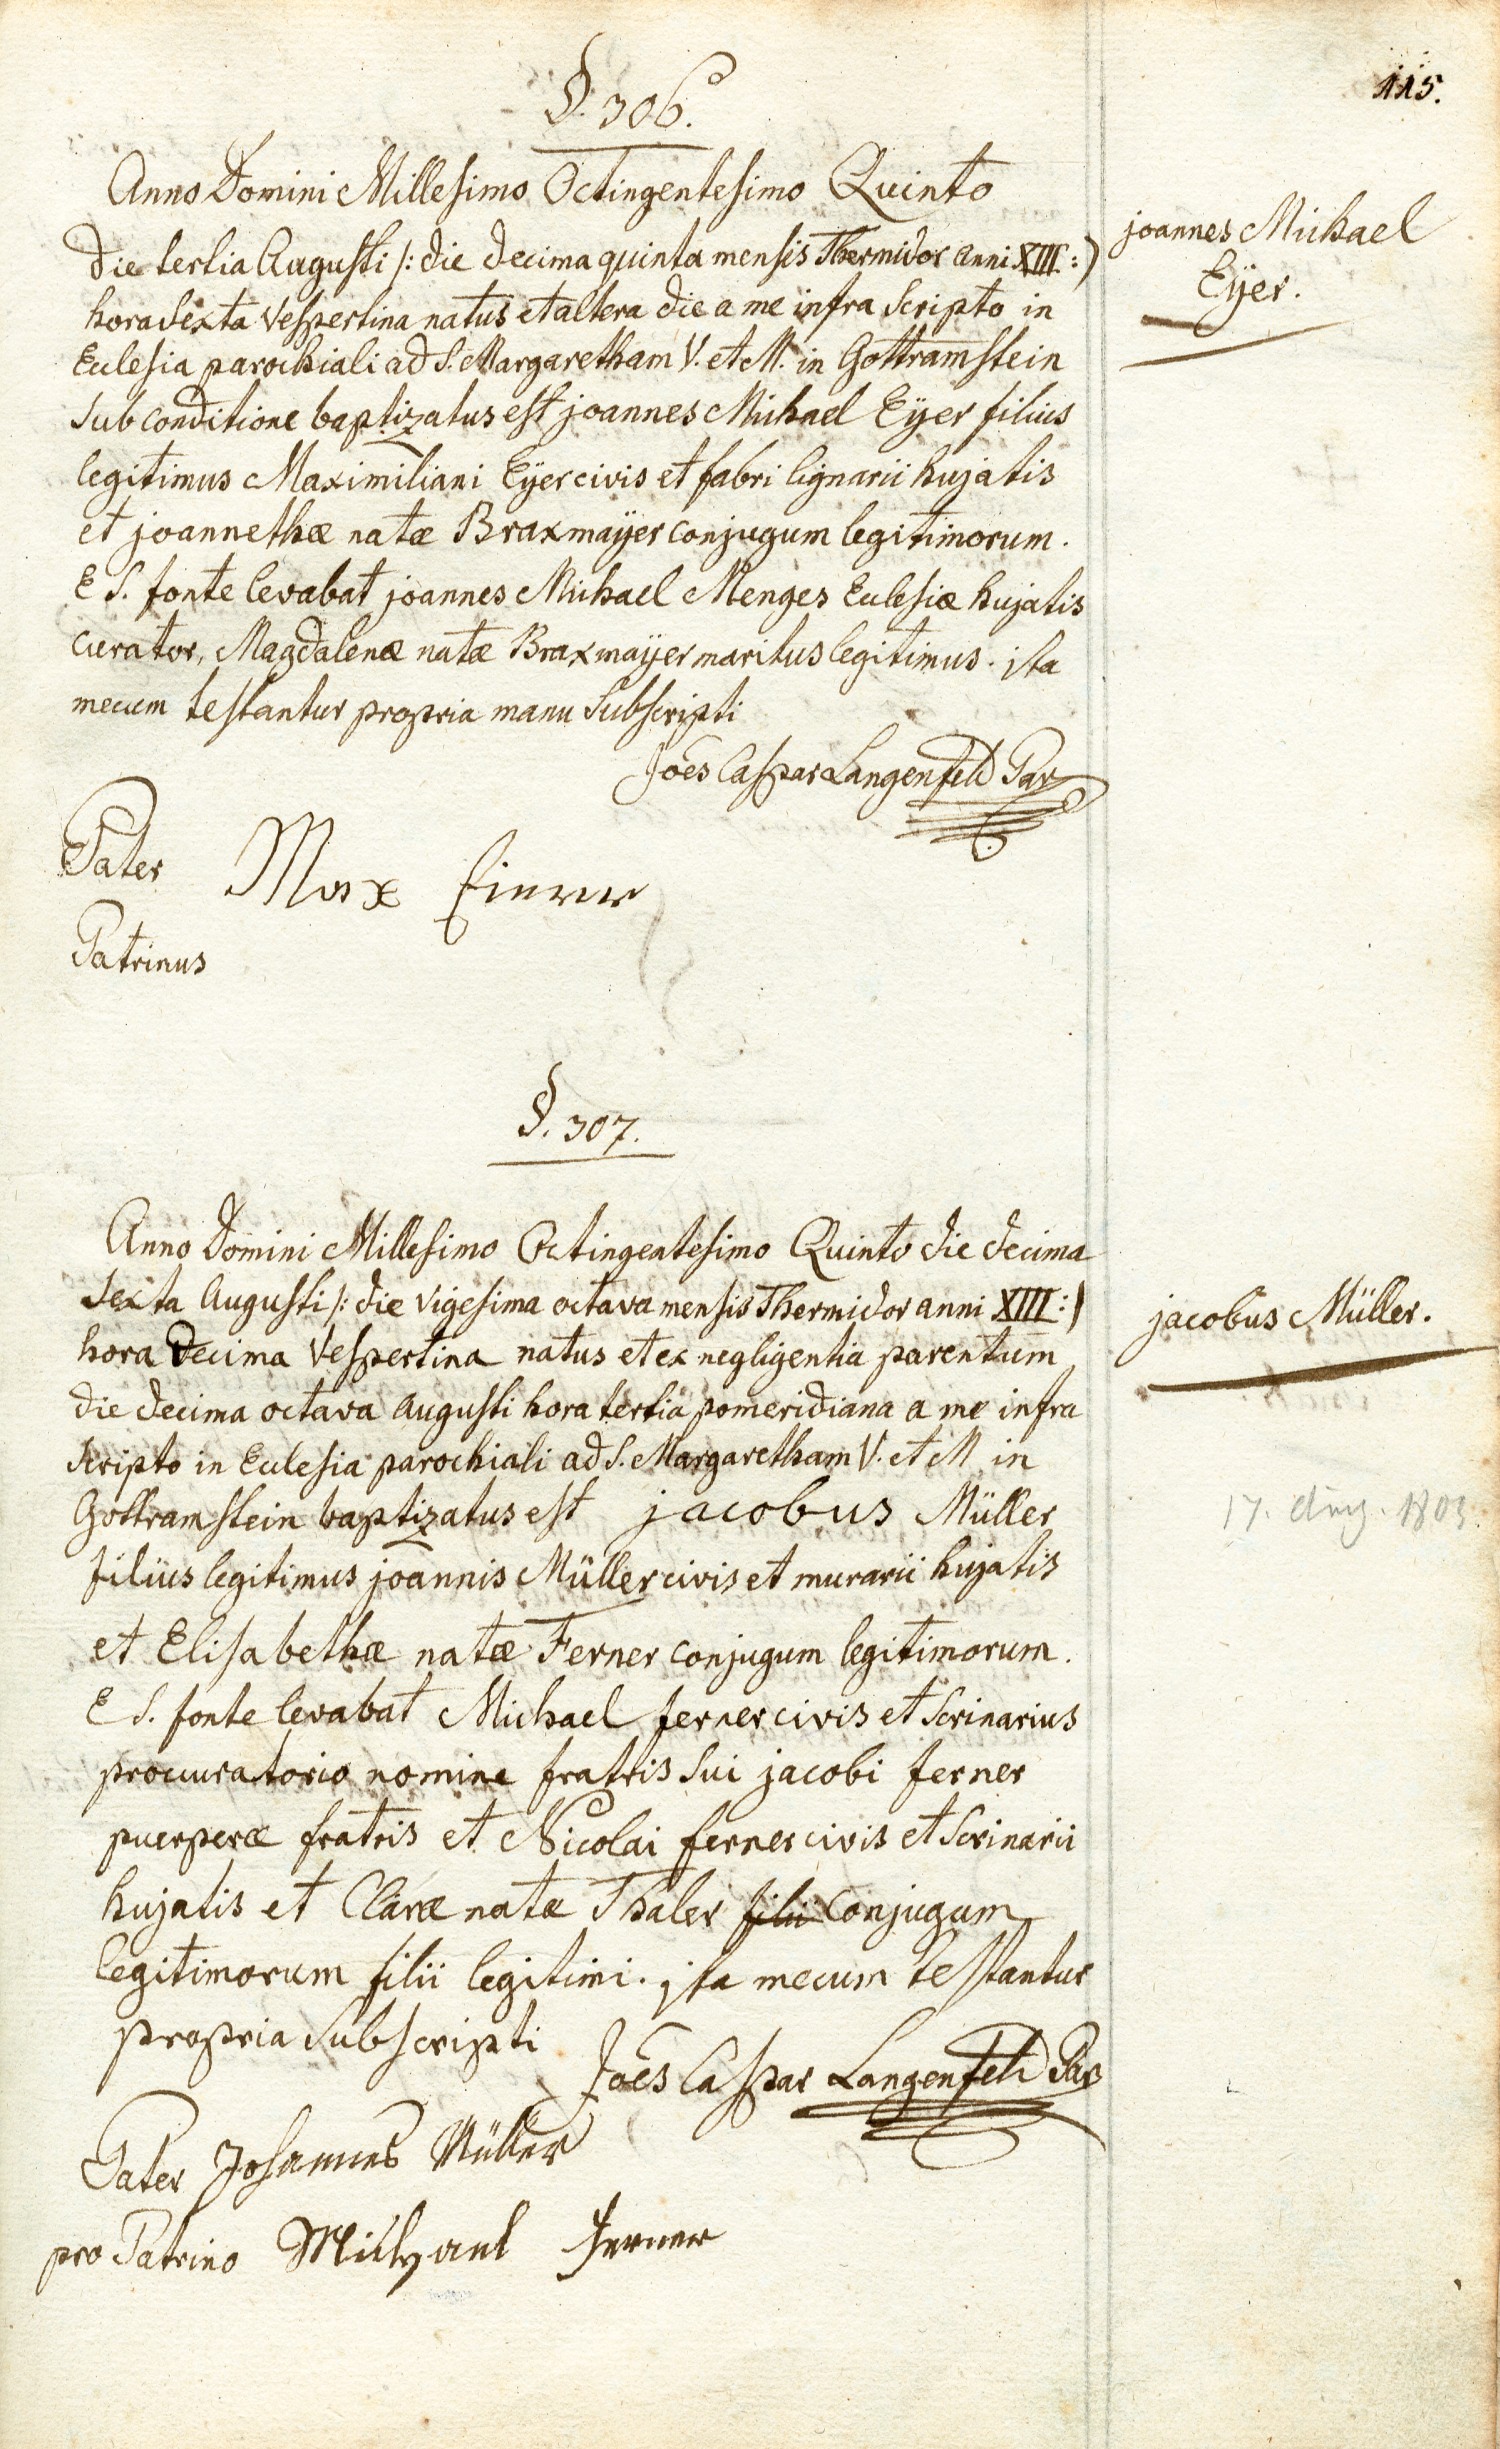 115.
§. 306.
Anno Domini Millesimo Octingentesimo Quinto
die tertia Augusti /: die decima quinta mensis Thermidor anni XIII :/
hora sexta vespertina natus et altera die a me infra scripto in
Eclesia parochiali ad S. Margaretham V. et M. in Gottramstein
sub conditione baptizatus est joannes Michael Eÿer filius
legitimus Maximiliani Eÿer civis et fabri lignarii hujatis
et joannethæ natæ Braxmaÿer conjugum legitimorum.
E S. fonte levabat joannes Michael Menges Eclesiæ hujatis
curator, Magdalenæ natæ Braxmaÿer maritus legitimus. jta
mecum testantur propria manu subscripti
Joēs Caspar Langenfeld Par
joannes Michael
Eÿer.
Pater Max
Patrinus
§. 307.
Anno Domini Millesimo Octingentesimo Quinto die decima
sexta Augusti /: die vigesima octava mensis Thermidor anni XIII :/
hora decima vespertina natus et ex negligentia parentum
die decima octava augusti hora tertia pomeridiana a me infra
scripto in Eclesia parochiali ad S. Margaretham V. et M in
Gottramstein baptizatus est jacobus Müller
filius legitimus joannis Müller civis et murarii hujatis
et Elisabethæ natæ Ferner conjugum legitimorum.
E S. fonte levabat Michael ferner civis et scrinarius
procuratorio nomine fratris sui jacobi ferner
puerperæ fratris et Nicolai ferner civis et scrinarii
hujatis et Claræ natæ Thaler filii conjugum
legitimorum filii legitimi. jta mecum testantur
propria subscripti
Joēs Caspar Langenfeld Par
jacobus Müller.
17. Aug. 1805.
Pater Johannes Müller
pro Patrino Michael Ferner